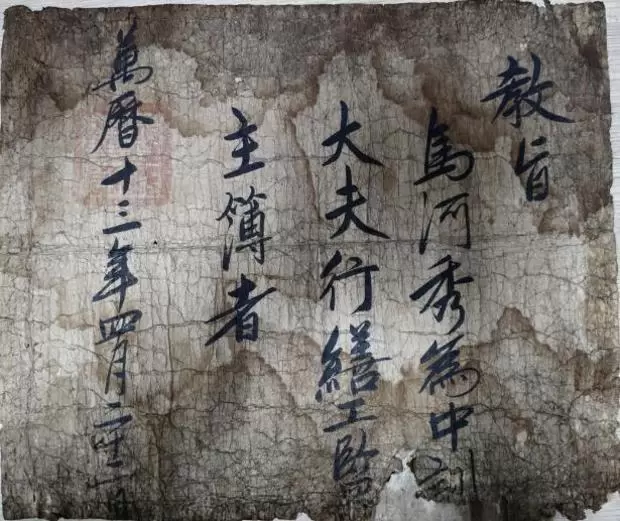 教旨
馬河秀為中訓
大夫行繕工監
主簿者
萬曆十三年四月二十二日